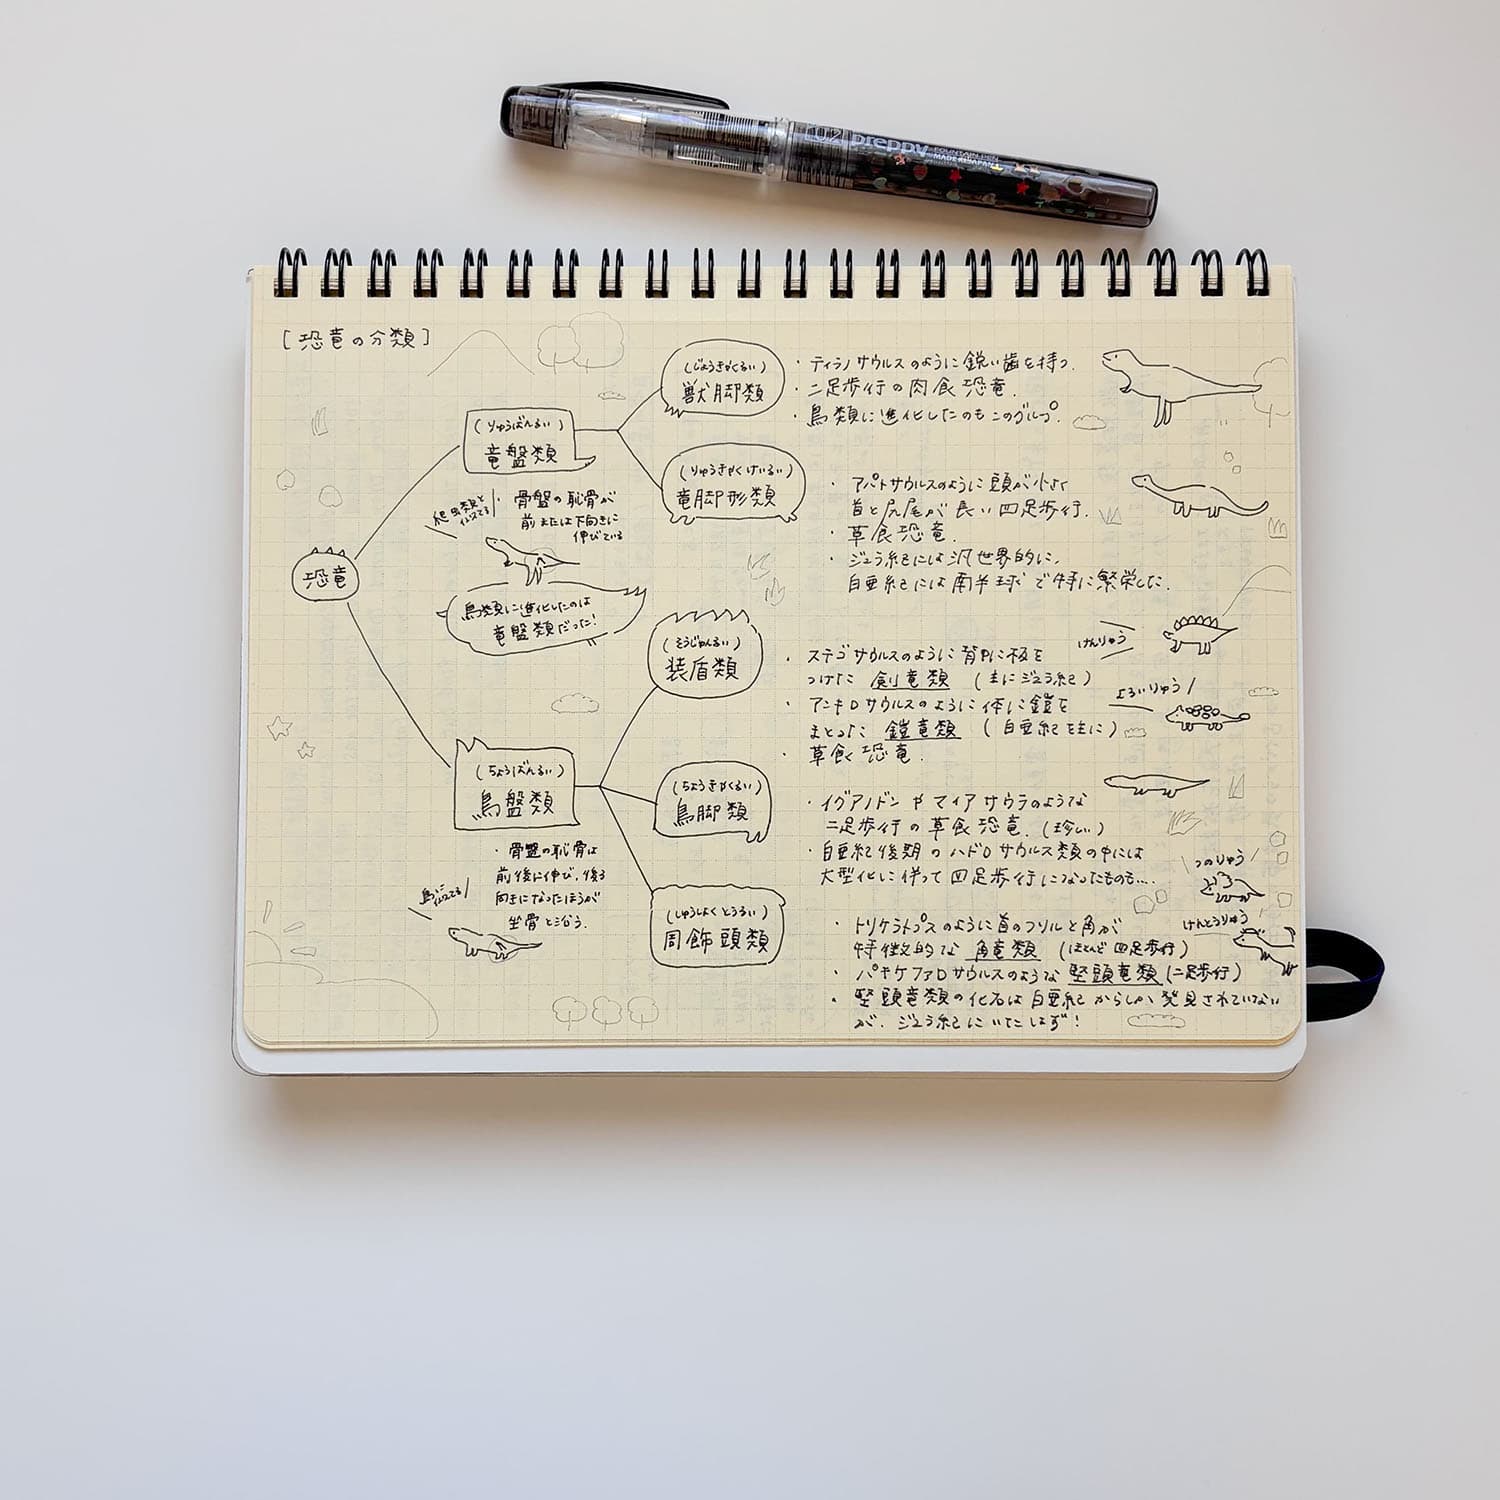 02 preppy
FOUNTAIN PEN
MADE IN JAPAN
[恐竜の分類]
恐竜
(りゅうばんるい)
竜盤類
爬虫類と
似てる
・骨盤の恥骨が
前または下向きに
伸びている
鳥類に進化したのは
竜盤類だった!
(じゅうきゃくるい)
獣脚類
・ティラノサウルスのように鋭い歯を持つ.
・二足歩行の肉食恐竜.
・鳥類に進化したのもこのグループ.
(りゅうきゃくけいるい)
竜脚形類
・アパトサウルスのように頭が小さく
首と尻尾が長い四足歩行.
・草食恐竜.
・ジュラ紀には汎世界的に、
白亜紀には南半球で特に繁栄した.
(ちょうばんるい)
鳥盤類
・骨盤の恥骨は
前後に伸び、後ろ
向きになったほうが
坐骨と沿う.
鳥に
似てる
(そうじゅんるい)
装盾類
・ステゴサウルスのように背中に板を
つけた 剣竜類 (主にジュラ紀)
・アンキロサウルスのように体に鎧を
まとった 鎧竜類 (白亜紀を主に)
・草食恐竜.
けんりゅう
よろいりゅう
(ちょうきゃくるい)
鳥脚類
・イグアノドンやマイアサウラのような
二足歩行の草食恐竜.(珍しい)
・白亜紀後期のハドロサウルス類の中には
大型化に伴って四足歩行になったものも….
(しゅうしょくとうるい)
周飾頭類
・トリケラトプスのように首のフリルと角が
特徴的な 角竜類 (ほとんど四足歩行)
・パキケファロサウルスのような 堅頭竜類 (二足歩行)
・堅頭竜類の化石は白亜紀からしか発見されていない
が、ジュラ紀にいたはず!
つのりゅう
けんとうりゅう